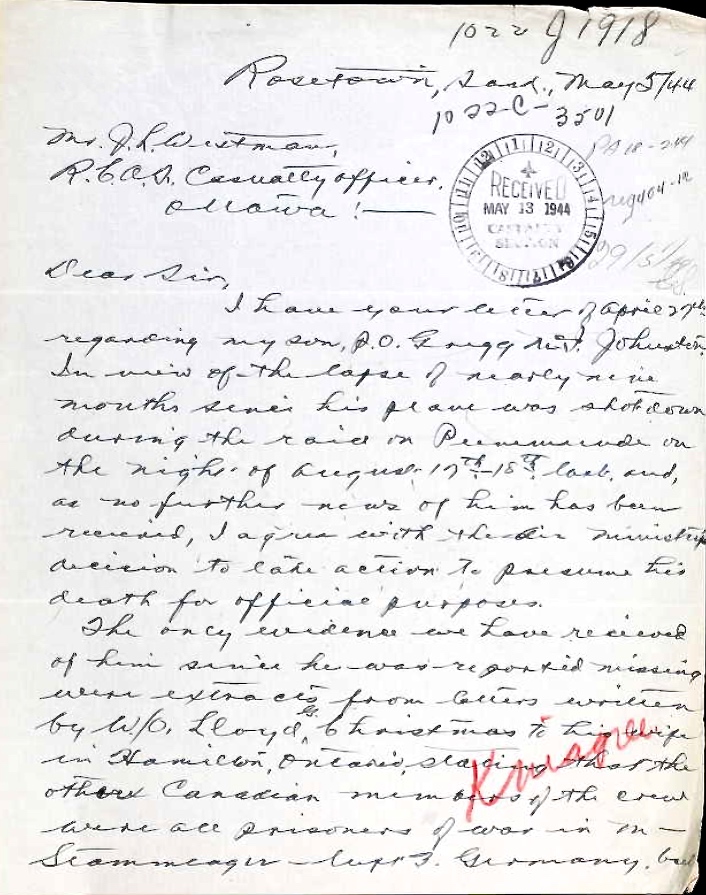 1022 J 1918
Rosetown, Sask., May 5/44
1022C-3501
Mr. J. R. Westman,
R.C.A.F. Casualty officer,
Ottawa!—
RECEIVED
MAY 13 1944
CASUALTY
SECTION
Dear Sir,
I have your letter of April 27th
regarding my son, P.O. Gregg Johnston.
In view of the lapse of nearly nine
months since his plane was shot down
during the raid on Peenemunde on
the night of August 17th-18th last, and,
as no further news of him has been
received, I agree with the Air Ministry
decision to take action to presume his
death for official purposes.
The only evidence we have received
of him since he was reported missing
were extracts from letters written
by W/O. Lloyd G. Christmas to his wife
in Hamilton, Ontario, stating that the
other Canadian members of the crew
were all prisoners of war in M-
Stammlager - Luft 3. Germany, but